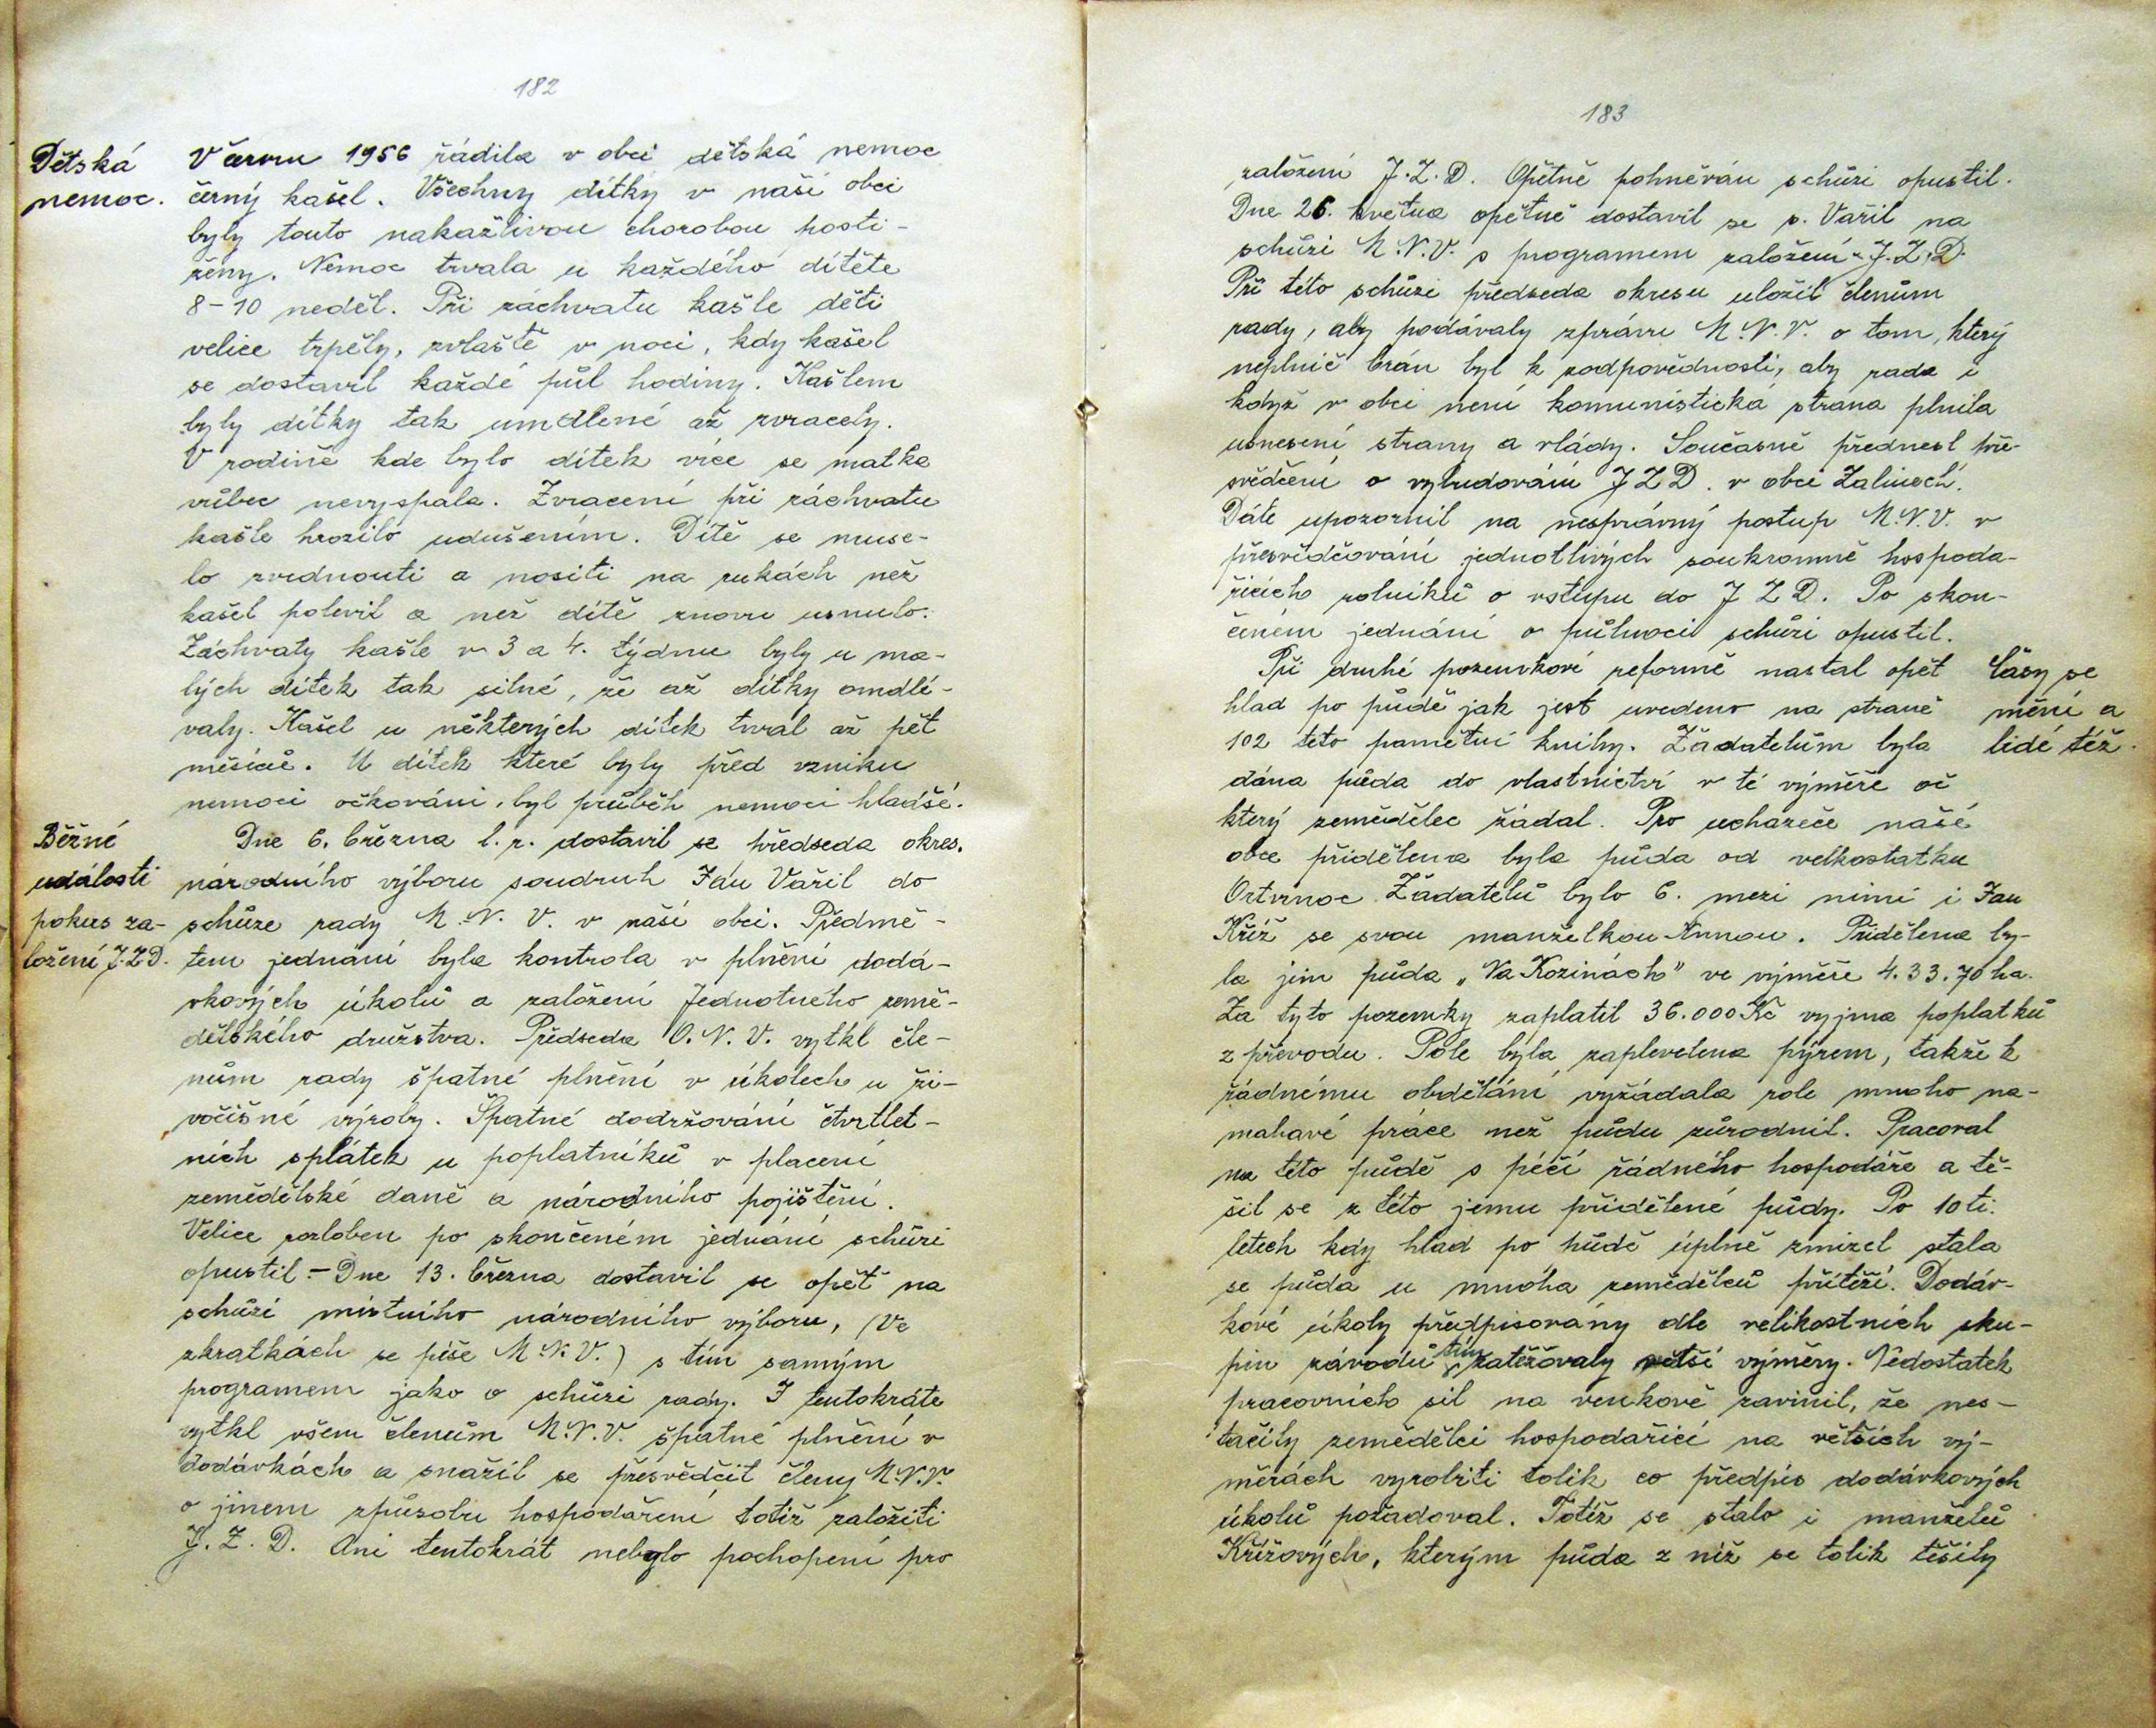 182
Dětská
nemoc.
V červnu 1956 řádila v obci dětská nemoc
černý kašel. Všechny dítky v naší obci
byly touto nakažlivou chorobou posti-
ženy. Nemoc trvala u každého dítěte
8-10 neděl. Při záchvatu kašle děti
velice trpěly, zvlaště v noci, kdy kašel
se dostavil každé půl hodiny. Kašlem
byly dítky tak umdlené až zvracely.
V rodině kde bylo dítek více se matka
vůbec nevyspala. Zvracení při záchvatu
kašle hrozilo udušením. Dítě se muse-
lo zvednouti a nositi na rukách než
kašel polevil a než dítě znovu usnulo.
Záchvaty kašle v 3 a 4. týdnu byly u ma-
lých dítek tak silné, že až dítky omdlí-
valy. Kašel u některých dítek trval až pět
měsíců. U dítek které byly před vzniku
nemoci očkováni, byl průběh nemoci hladší.
Běžné
události
pokus za-
ložení J.Z.D.
Dne 6. března l.r. dostavil se předseda okres.
národního výboru soudruh Ján Vařil do
schůze rady M.N.V. v naší obci. Předmě-
tem jednání byla kontrola v plnění dodá-
vkových úkolů a založení Jednotného země-
dělského družstva. Předseda O.N.V. vytkl čle-
nům rady špatné plnění v úkolech u ži-
vočišné výroby. Špatné dodržování čtvrtlet-
ních splátek u poplatníků v placení
zemědělské daně a národního pojištění.
Velice rozloben po skončeném jednání schůzi
opustil.- Dne 13. března dostavil se opět na
schůzi místního národního výboru, (Ve
zkratkách se píše M.N.V.) s tím samým
programem jako o schůzi rady. I tentokráte
vytkl všem členům M.N.V. špatné plnění v
dodávkách a snažil se přesvědčit členy M.N.V.
o jinem způsobu hospodaření totiž založiti
J.Z.D. Ani tentokrát nebylo pochopení pro
183
založení J.Z.D. Opětně pohněván schůzi opustil.
Dne 26. května opětně dostavil se s. Vařil na
schůzi M.N.V. s programem založení J.Z.D.
Při této schůzi předseda okresu uložil členům
rady, aby podávaly zprávu M.N.V. o tom, který
neplnič brán byl k zodpovědnosti, aby rada i
když v obci není komunistická strana plnila
usnesení strany a vlády. Současně přednesl pře-
svědčení o vybudování JZD. v obci Zalinech.
Dále upozornil na nesprávný postup M.N.V. v
přesvědčování jednotlivých soukromně hospoda-
řících rolníků o vstupu do JZD. Po skon-
čeném jednání o půlnoci schůzi opustil.
Při druhé pozemkové reformě nastal opět
hlad po půdě jak jest uvedeno na straně
102 této pamětní knihy. Žadatelům byla
dána půda do vlastnictví v té výměře oč
který zemědělec žádal. Pro uchazeče naší
obce přidělena byla půda od velkostatku
Ostrnoc. Žadatelů bylo 6. mezi nimi i Jan
Kříž se svou manželkou Annou. Přidělena by-
la jim půda „Na Kozinách" ve výměře 4.33.70 ha.
Za tyto pozemky zaplatil 36.000 Kč vyjma poplatků
z převodu. Pole byla zaplevelena pýrem, takže k
řádnému obdělání vyžádala role mnoho na-
mahavé práce než půdu zúrodnil. Pracoval
na této půdě s péčí řádného hospodáře a tě-
šil se z této jemu přidělené půdy. Po 10ti.
letech kdy hlad po půdě úplně zmizel stala
se půda u mnoha zemědělců přítěží. Dodáv-
kové úkoly předpisovány dle velikostních sku-
pin závodů tím zatěžovaly větší výměry. Nedostatek
pracovních sil na venkově zavinil, že nes-
tačily zemědělci hospodařící na větších vý-
měrách vyrobiti tolik co předpis dodávkových
úkolů požadoval. Totéž se stalo i manželů
Křížových, kterým půda z níž se tolik těšily
Časy se
mění a
lidé též.